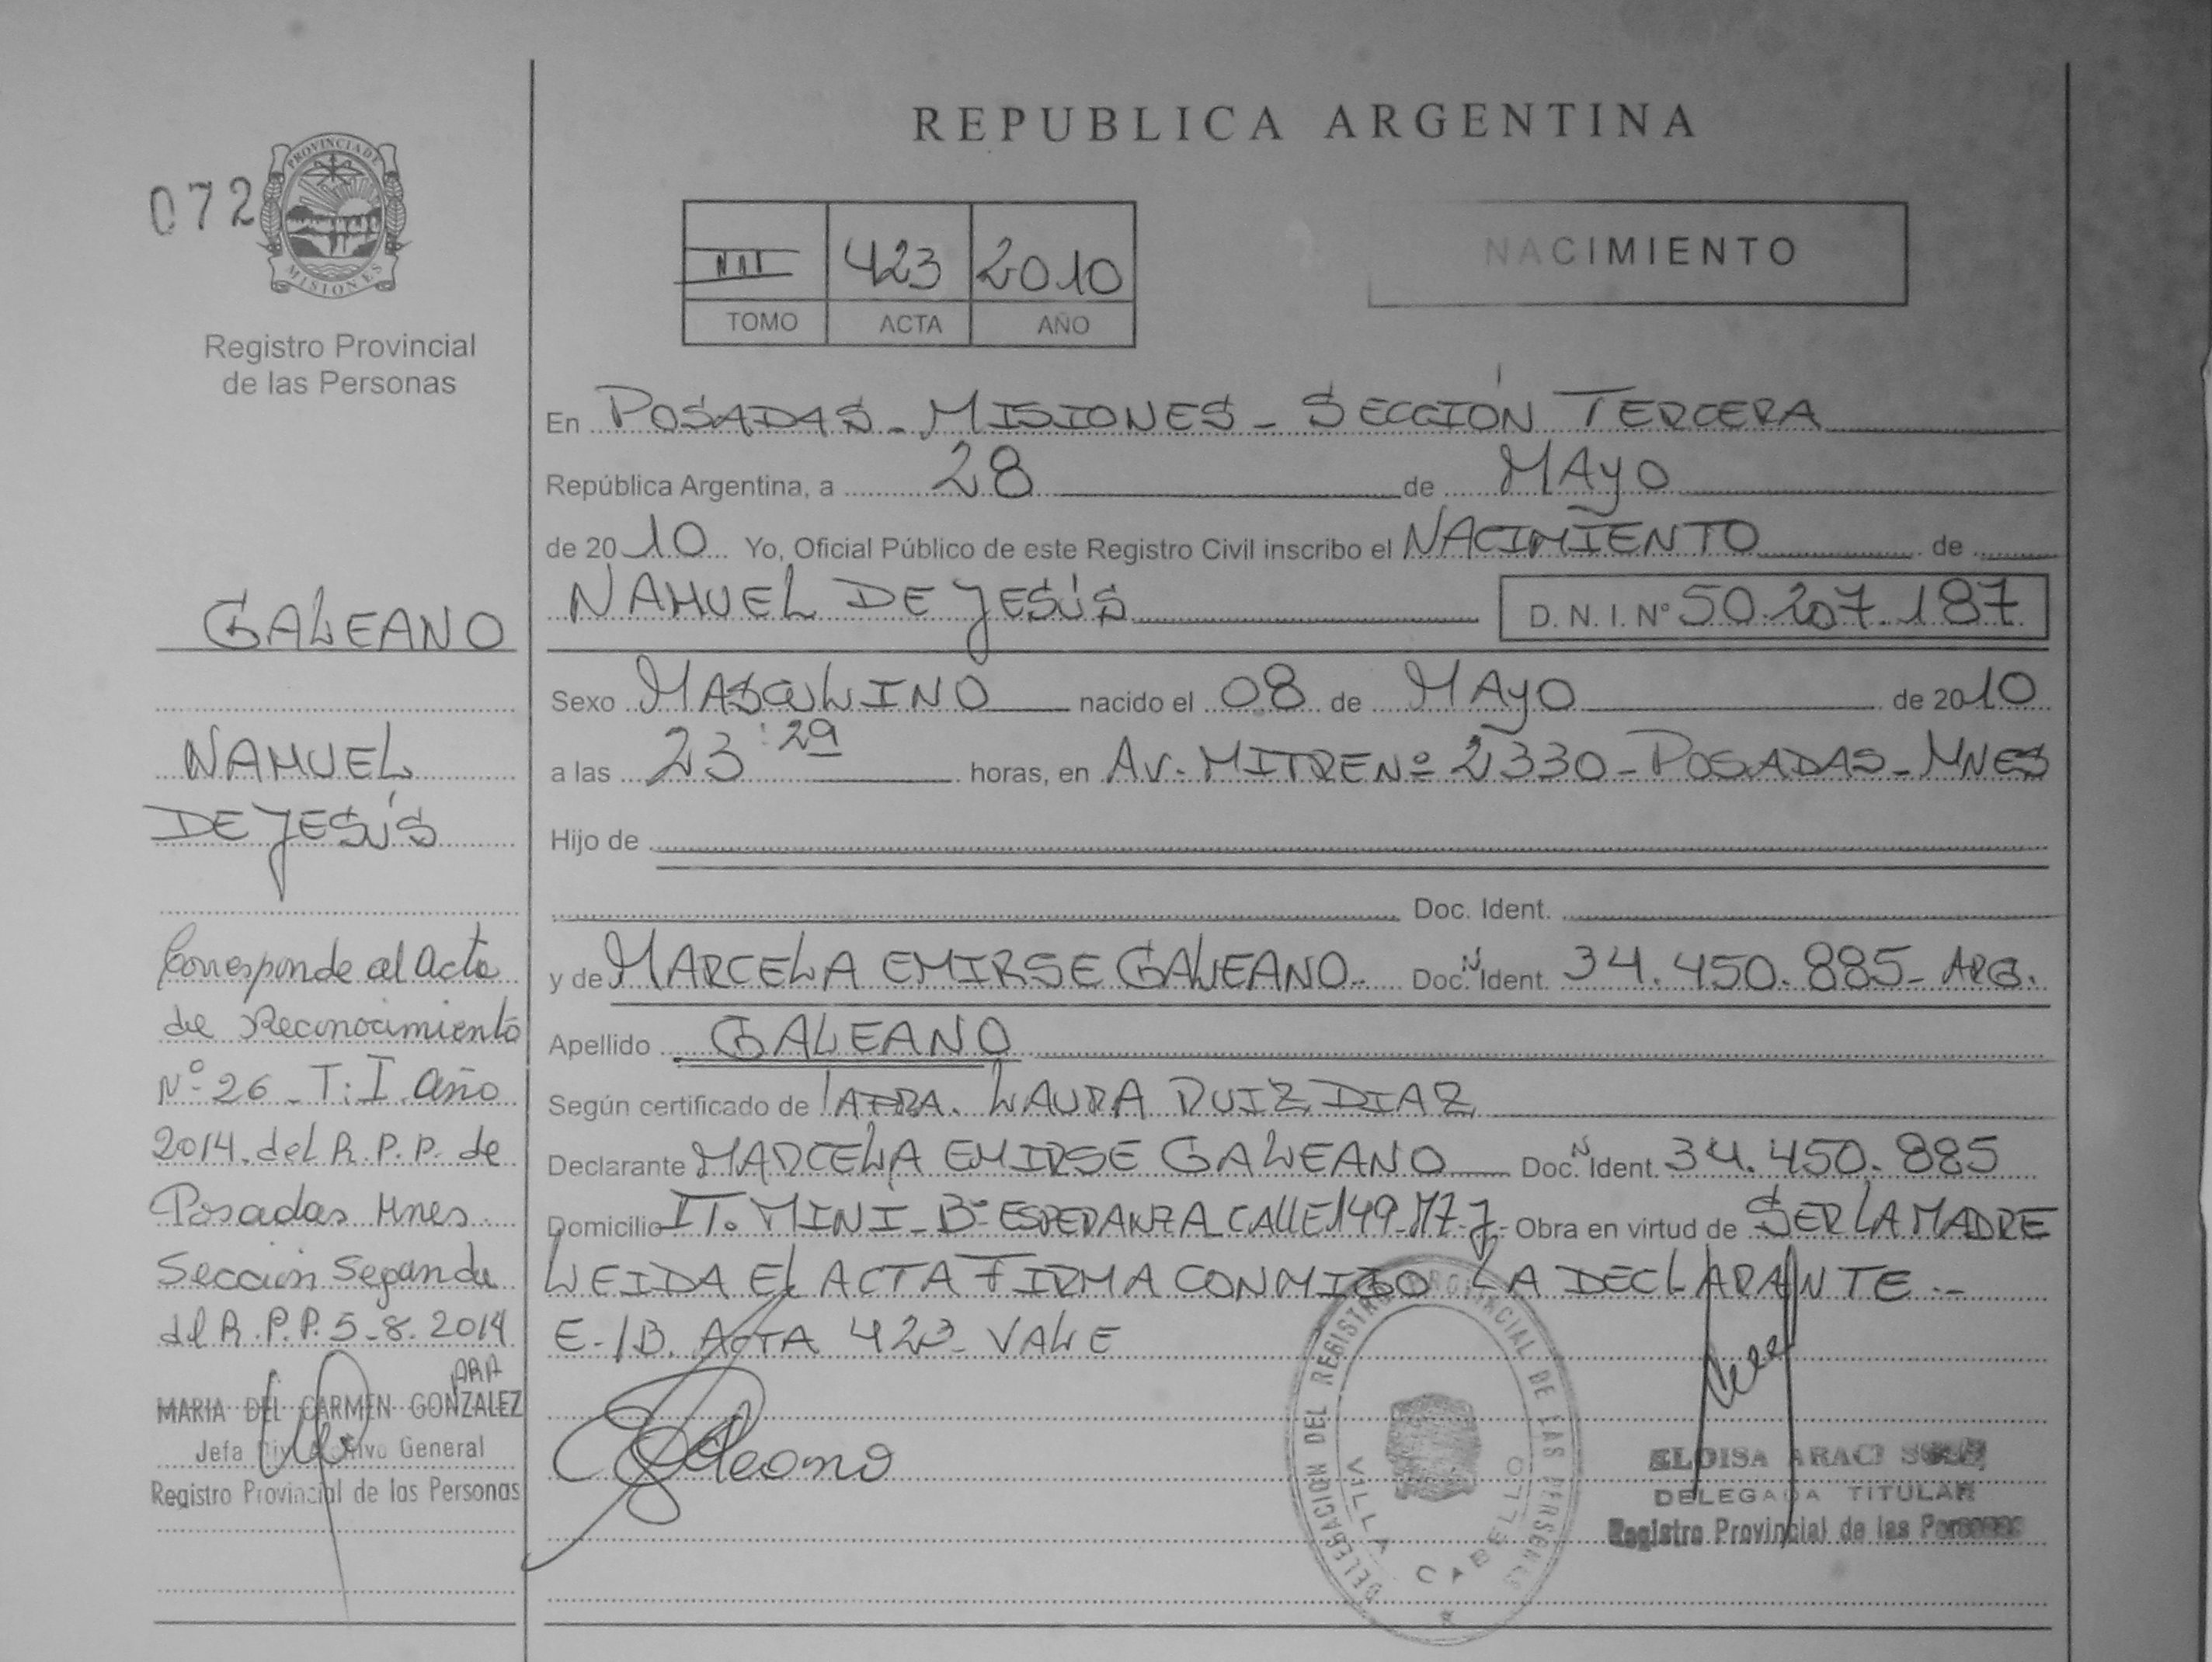 REPUBLICA ARGENTINA
072
PROVINCIA DE
MISIONES
Registro Provincial
de las Personas
423 2010
TOMO ACTA AÑO
NACIMIENTO
En POSADAS - MISIONES - SECCIÓN TERCERA
República Argentina, a 28 de MAYO
de 2010 Yo, Oficial Público de este Registro Civil inscribo el NACIMIENTO de
NAHUEL DE JESÚS D. N. I. Nº 50.207.187
Sexo MASCULINO nacido el 08 de MAYO de 2010
a las 23:29 horas, en AV. MITRE Nº 2330 - POSADAS - MNES
Hijo de
Doc. Ident.
y de MARCELA EMIRSE GALEANO. Doc. N Ident. 34.450.885 - ARG.
Apellido GALEANO
Según certificado de LAURA RUIZ DIAZ
Declarante MARCELA EMIRSE GALEANO Doc. N Ident. 34.450.885
Domicilio IT. MINI - Bº ESPERANZA CALLE 149 - Obra en virtud de SER LA MADRE
LEIDA EL ACTA FIRMA CONMIGO LA DECLARANTE.-
E-/B. ACTA 423 - VALE
GALEANO
NAHUEL
DE JESÚS
Corresponde al Acta
de Reconocimiento
Nº 26 - T: I. Año
2014. del R.P.P. de
Posadas Mnes.
Sección Segunda
del R.P.P. 5-8-2014
MARIA DEL CARMEN GONZALEZ
Jefa Div. Archivo General
Registro Provincial de las Personas
DELEGACION DEL REGISTRO PROVINCIAL DE LAS PERSONAS
VILLA CABELLO
ELOISA ARACI
DELEGADA TITULAR
Registro Provincial de las Personas